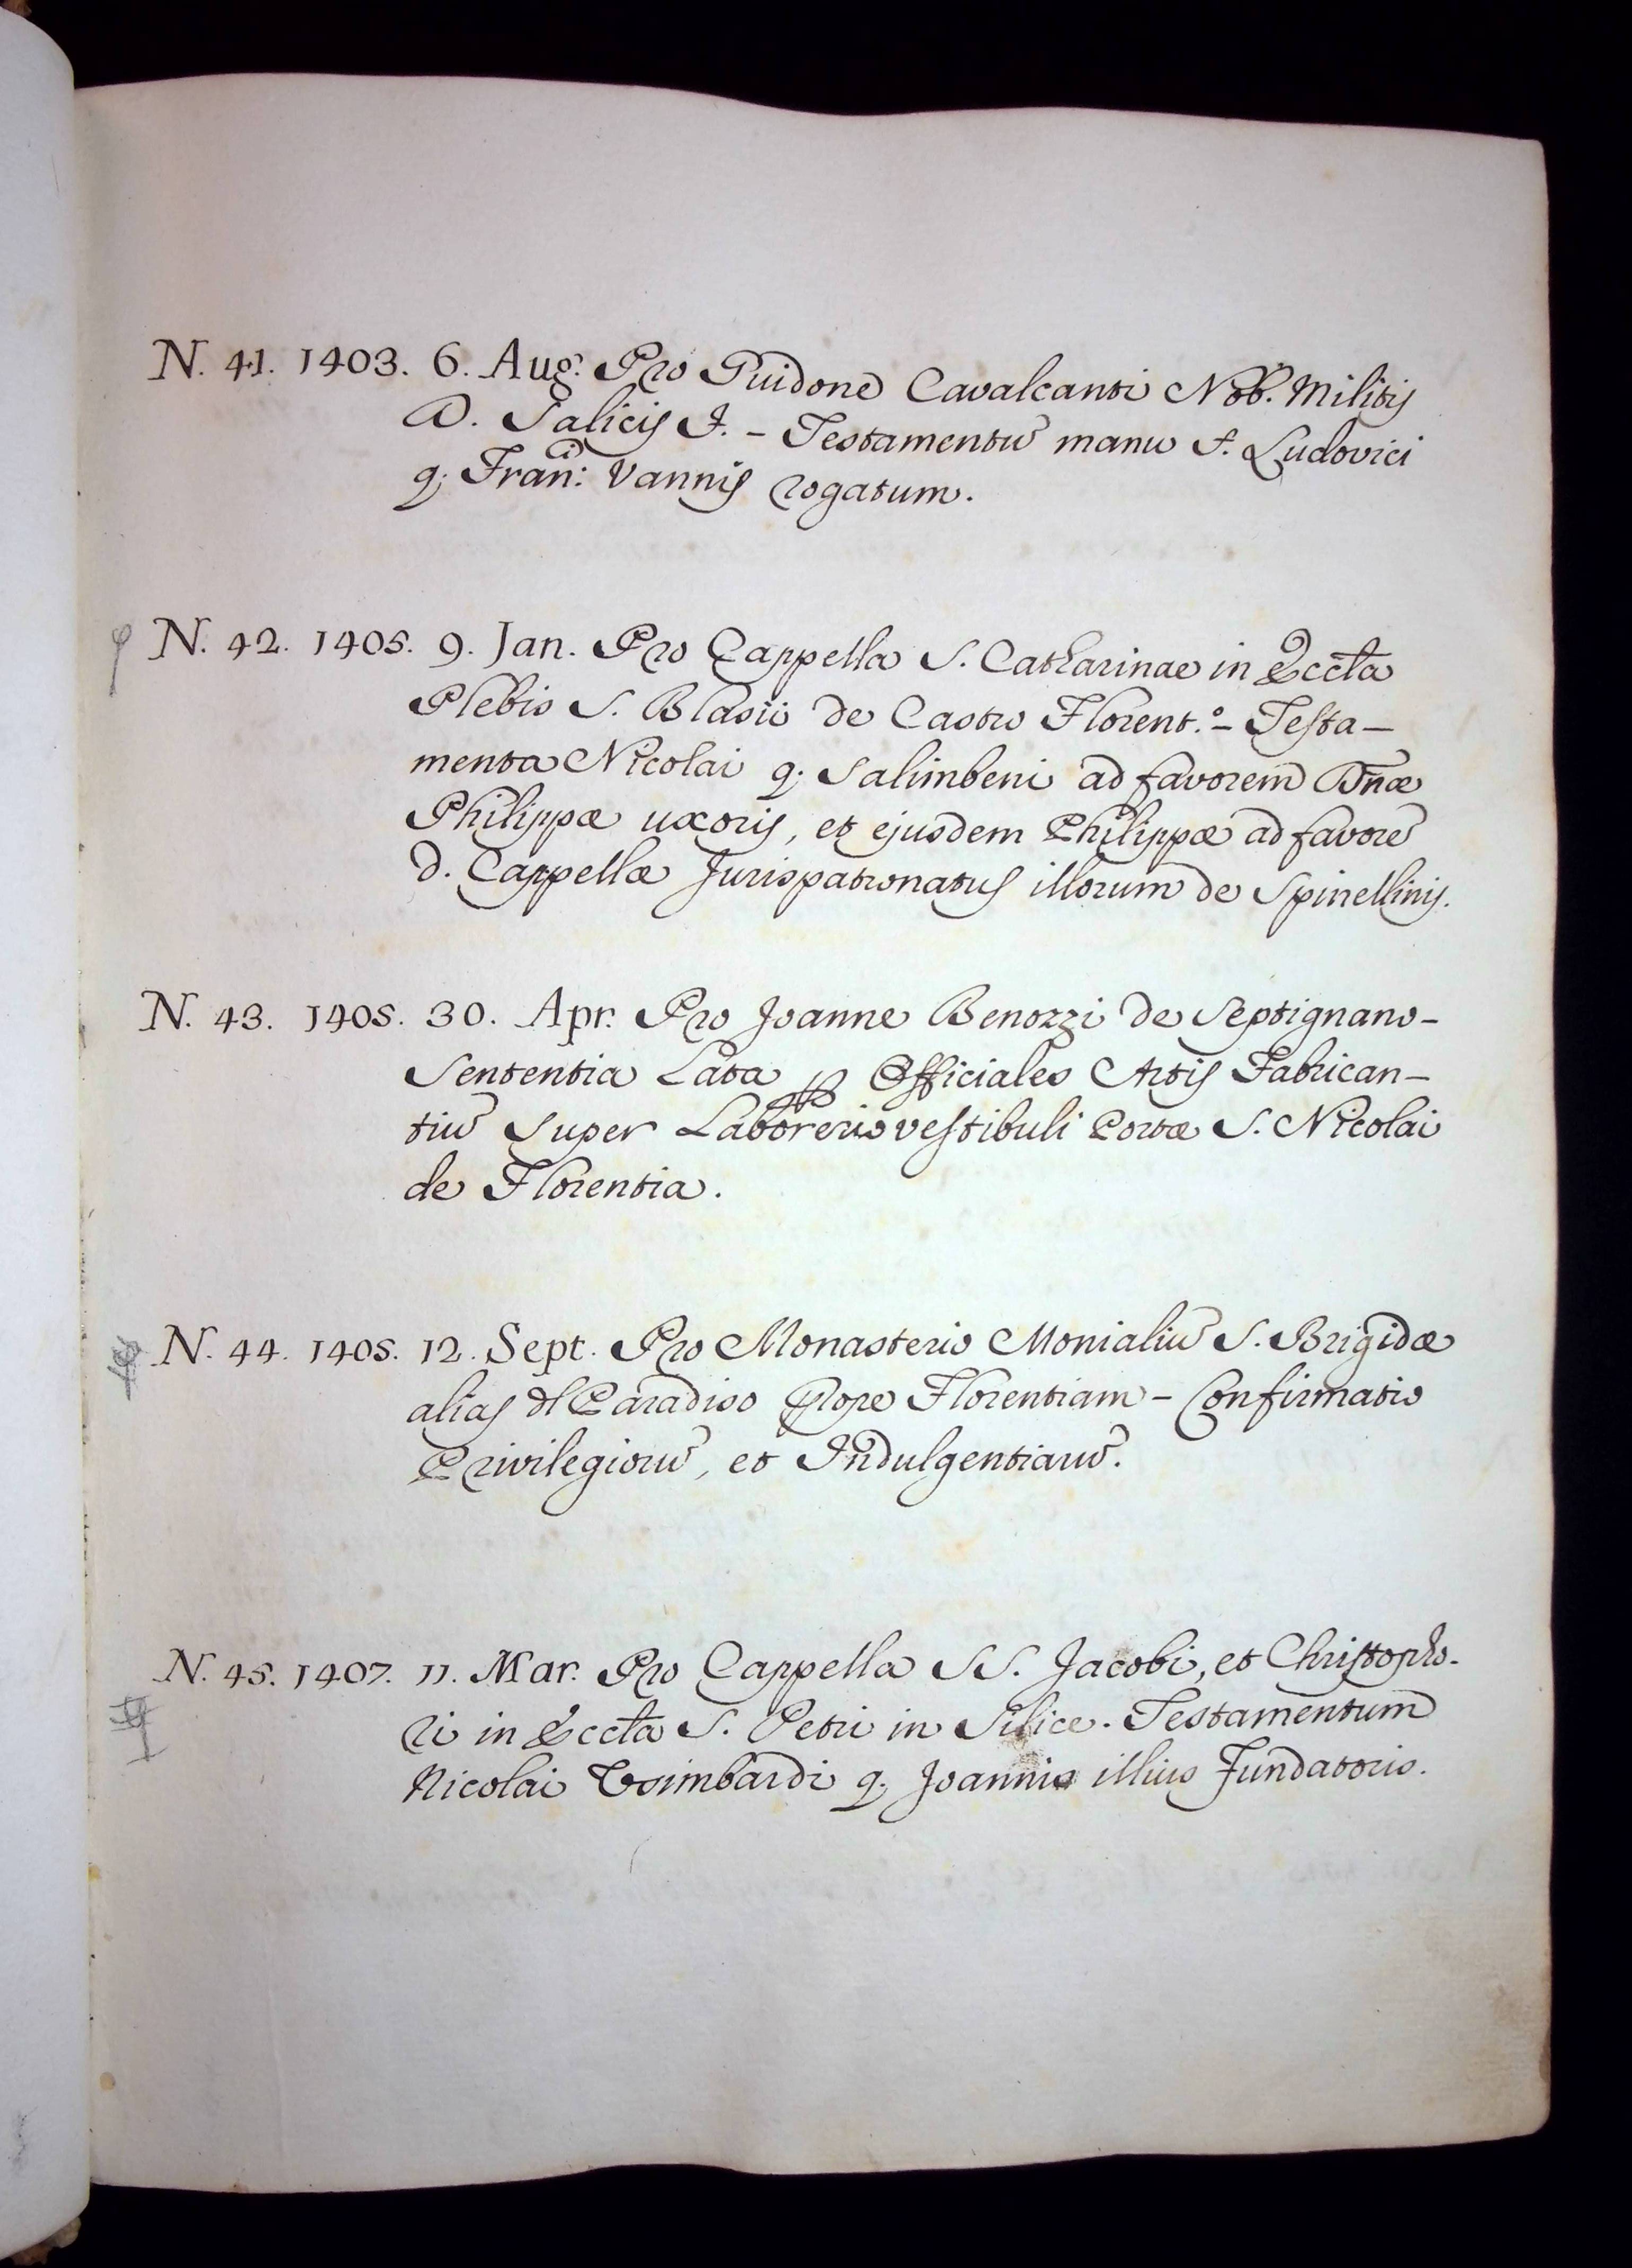 N. 41. 1403. 6. Aug. Pro Guidone Cavalcanti Nob. Militis
D. Salicis F. - Testamentũ manu S. Ludovici
q. Fran.ci Vannis rogatum.
N. 42. 1405. 9. Jan. Pro Cappella S. Catharinae in Eccla
Plebis S. Blasii de Castro Florent.° - Testa-
menta Nicolai q. Salimbeni ad favorem Dnæ
Philippæ uxoris, et ejusdem Philippæ ad favorẽ
d. Cappellæ Jurispatronatus illorum de Spinellinis.
N. 43. 1405. 30. Apr. Pro Joanne Benozzi de Septignano -
Sententia Lata ꝑ Officiales Artis Fabrican-
tiũ super Laborerio vestibuli Portæ S. Nicolai
de Florentia.
N. 44. 1405. 12. Sept. Pro Monasterio Monialiũ S. Brigidæ
alias dl Paradiso Prope Florentiam - Confirmatio
Privilegiorũ, et Indulgentiarũ.
N. 45. 1407. 11. Mar. Pro Cappella SS. Jacobi, et Christopho-
ri in Eccla S. Petri in Silice. Testamentum
Nicolai q. Joannis illius Fundatoris.